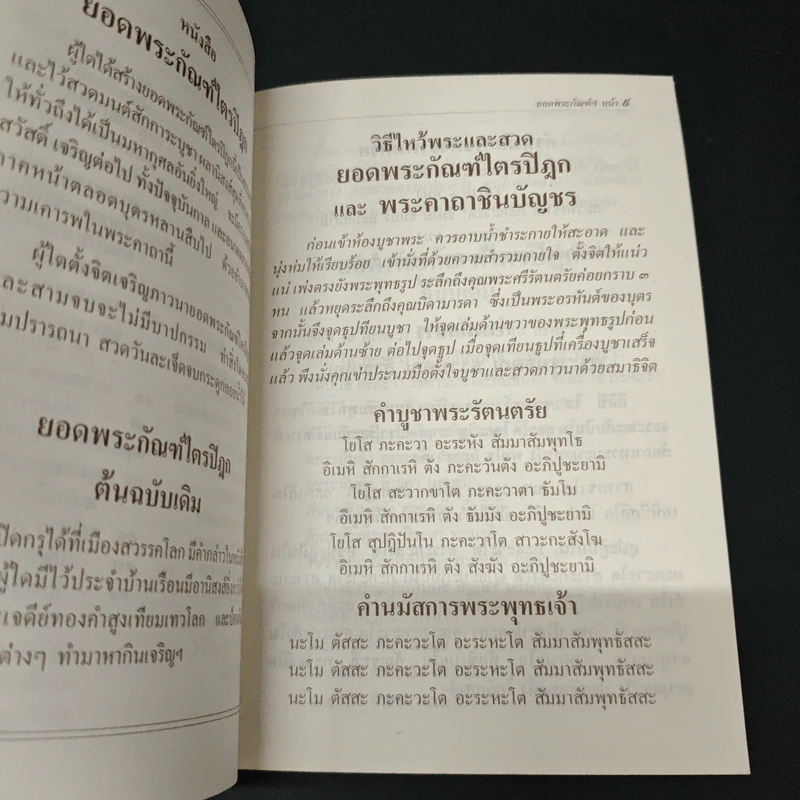 หนังสือ
ยอดพระกัณฑ์ไตรปิฎก
ผู้ใดได้สร้างยอดพระกัณฑ์ไตรปิฎก
และไว้สวดมนต์สักการะบูชา
ให้ทั่วถึงได้เป็นมหากุศลอันยิ่งใหญ่
สวัสดิ์ เจริญต่อไป ทั้งปัจจุบันกาล
ภาคหน้าตลอดบุตรหลานสืบไป
ความเคารพในพระคาถานี้
ผู้ใดตั้งจิตเจริญภาวนายอดพระกัณฑ์ไตรปิฎก
และสามจบจะไม่มีบาปกรรม
มปรารถนา สวดวันละเจ็ดจบ
ยอดพระกัณฑ์ไตรปิฎก
ต้นฉบับเดิม
ปิดกรุได้ที่เมืองสวรรคโลก มีคำกล่าว
ผู้ใดมีไว้ประจำบ้านเรือนมีอานิสงส์
เจดีย์ทองคำสูงเทียมเทวโลก
ต่างๆ ทำมาหากินเจริญฯ
ยอดพระกัณฑ์ฯ หน้า ๕
วิธีไหว้พระและสวด
ยอดพระกัณฑ์ไตรปิฎก
และ พระคาถาชินบัญชร
ก่อนเข้าห้องบูชาพระ ควรอาบน้ำชำระกายให้สะอาด และ
นุ่งห่มให้เรียบร้อย เข้านั่งที่ด้วยความสำรวมกายใจ ตั้งจิตให้แน่ว
แน่ เพ่งตรงยังพระพุทธรูป ระลึกถึงคุณพระศรีรัตนตรัยค่อยกราบ ๓
หน แล้วหยุดระลึกถึงคุณบิดามารดา ซึ่งเป็นพระอรหันต์ของบุตร
จากนั้นจึงจุดธูปทียนบูชา ให้จุดเล่มด้านขวาของพระพุทธรูปก่อน
แล้วจุดเล่มด้านซ้าย ต่อไปจุดธูป เมื่อจุดเทียนธูปที่เครื่องบูชาเสร็จ
แล้ว พึงนั่งคุกเข่าประนมมือตั้งใจบูชาและสวดภาวนาด้วยสมาธิจิต
คำบูชาพระรัตนตรัย
โยโส ภะคะวา อะระหัง สัมมาสัมพุทโธ
อิเมหิ สักกาเรหิ ตัง ภะคะวันตัง อะภิปูชะยามิ
โยโส สะวากขาโต ภะคะวาตา ธัมโม
อิเมหิ สักกาเรหิ ตัง ธัมมัง อะภิปูชะยามิ
โยโส สุปฏิปันโน ภะคะวาโต สาวะกะสังโฆ
อิเมหิ สักกาเรหิ ตัง สังฆัง อะภิปูชะยามิ
คำนมัสการพระพุทธเจ้า
นะโม ตัสสะ ภะคะวะโต อะระหะโต สัมมาสัมพุทธัสสะ
นะโม ตัสสะ ภะคะวะโต อะระหะโต สัมมาสัมพุทธัสสะ
นะโม ตัสสะ ภะคะวะโต อะระหะโต สัมมาสัมพุทธัสสะ